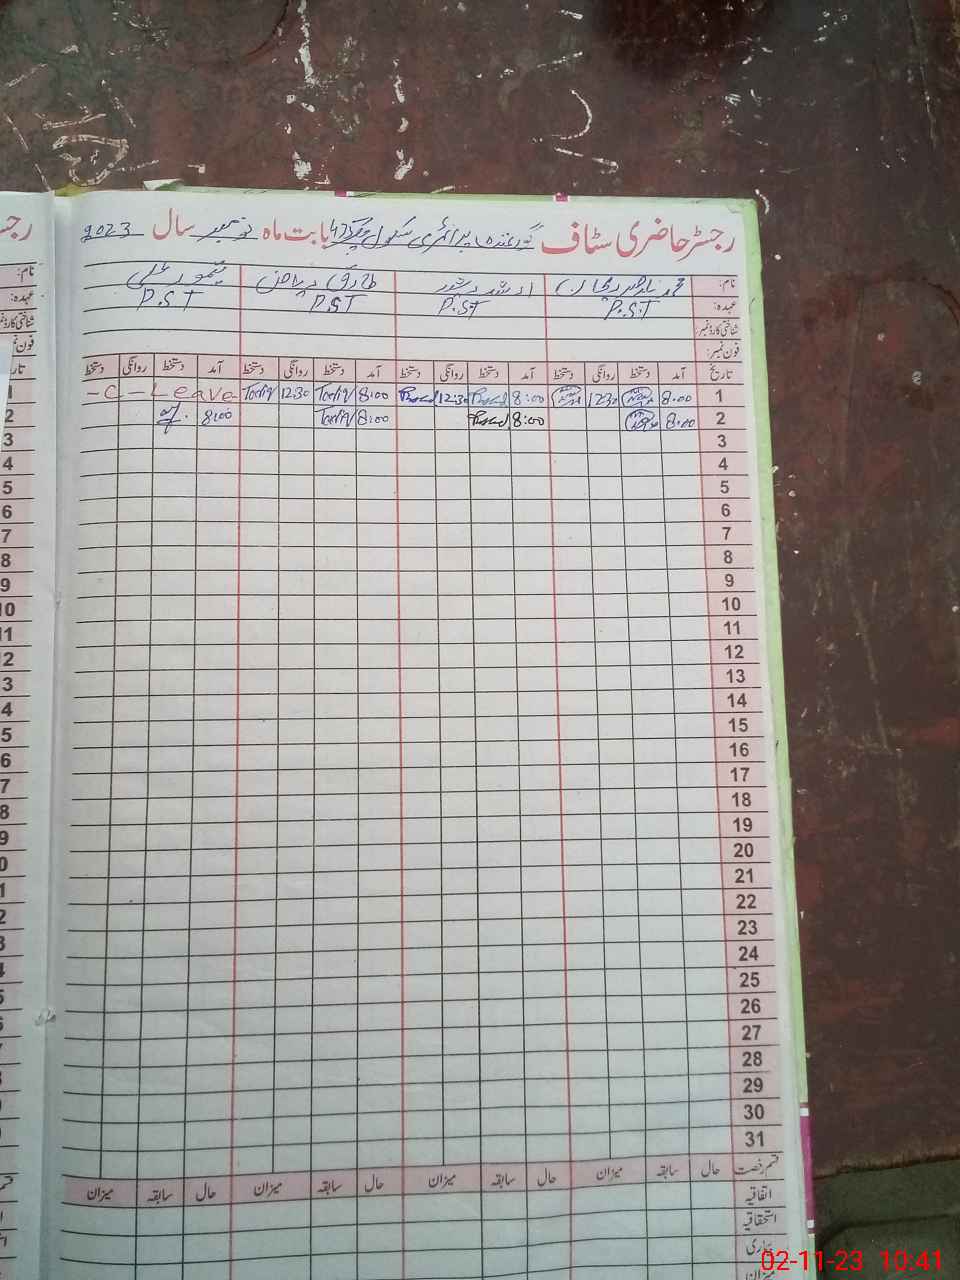 رجسٹر حاضری سٹاف گورنمنٹ پرائمری سکول چک 47 بابت ماہ نومبر سال 2023
نام: ارشد طارق تیمور علی
عہدہ: P.S.T P.S.T P.S.T P.S.T
شناختی کارڈ نمبر:
فون نمبر:
تاریخ آمد دستخط روانگی دستخط آمد دستخط روانگی دستخط آمد دستخط روانگی دستخط آمد دستخط روانگی دستخط
1 8:00 1230 8:00 12:30 8:00 Tariq 1230 Tariq -C-Leave
2 8:00 8:00 8:00 Tariq 8:00
3
4
5
6
7
8
9
10
11
12
13
14
15
16
17
18
19
20
21
22
23
24
25
26
27
28
29
30
31
قسم رخصت حال سابقہ میزان حال سابقہ میزان حال سابقہ میزان حال سابقہ میزان
اتفاقیہ
استحقاقیہ
بیماری
میزان
02-11-23 10:41